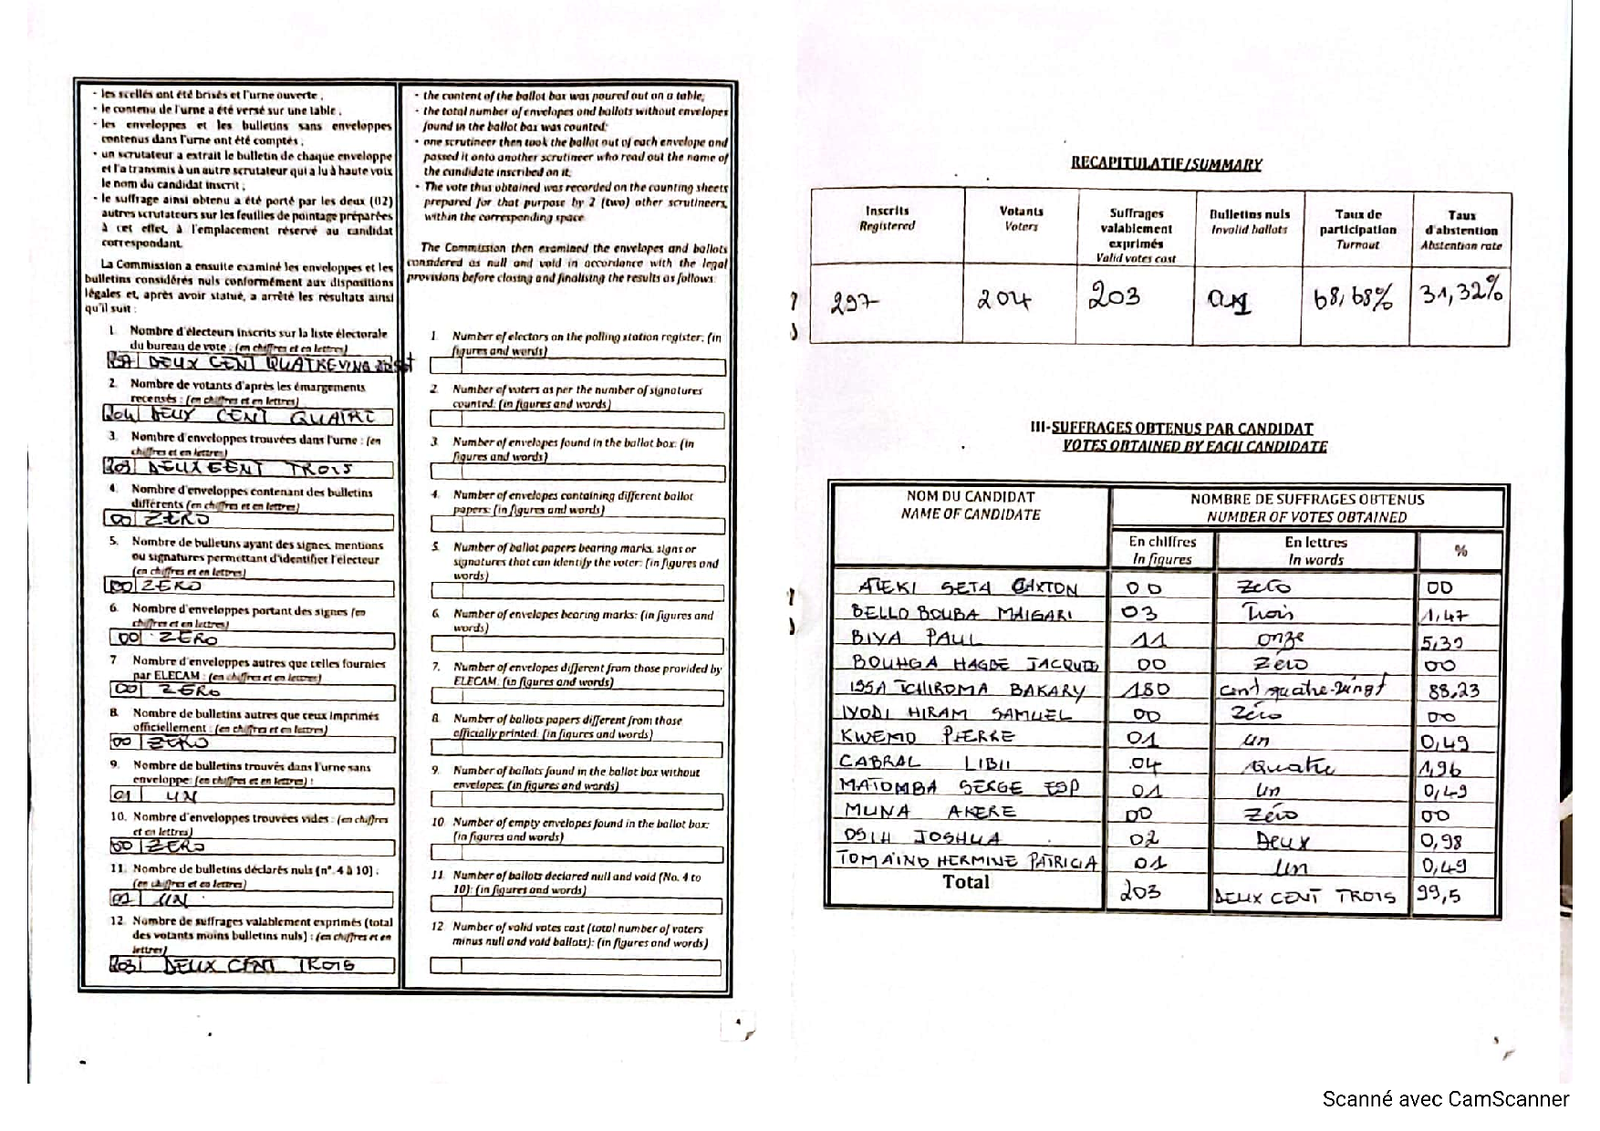 - les scellés ont été brisés et l'urne ouverte ;
- le contenu de l'urne a été versé sur une table ;
- les enveloppes et les bulletins sans enveloppes
contenus dans l'urne ont été comptés ;
- un scrutateur a extrait le bulletin de chaque enveloppe
et l'a transmis à un autre scrutateur qui a lu à haute voix
le nom du candidat inscrit ;
- le suffrage ainsi obtenu a été porté par les deux (02)
autres scrutateurs sur les feuilles de pointage préparées
à cet effet, à l'emplacement réservé au candidat
correspondant.
La Commission a ensuite examiné les enveloppes et les
bulletins considérés nuls conformément aux dispositions
légales et, après avoir statué, a arrêté les résultats ainsi
qu'il suit :
1. Nombre d'électeurs inscrits sur la liste électorale
du bureau de vote : (en chiffres et en lettres)
297 DEUX CENT QUATREVING
2. Nombre de votants d'après les émargements
recensés : (en chiffres et en lettres)
204 DEUX CENT QUATRE
3. Nombre d'enveloppes trouvées dans l'urne : (en
chiffres et en lettres)
203 DEUX CENT TROIS
4. Nombre d'enveloppes contenant des bulletins
différents (en chiffres et en lettres)
00 ZERO
5. Nombre de bulletins ayant des signes, mentions
ou signatures permettant d'identifier l'électeur
(en chiffres et en lettres)
00 ZERO
6. Nombre d'enveloppes portant des signes (en
chiffres et en lettres)
00 ZERO
7 Nombre d'enveloppes autres que celles fournies
par ELECAM : (en chiffres et en lettres)
00 ZERO
8. Nombre de bulletins autres que ceux imprimés
officiellement : (en chiffres et en lettres)
00 ZERO
9. Nombre de bulletins trouvés dans l'urne sans
enveloppe: (en chiffres et en lettres) :
01 UN
10. Nombre d'enveloppes trouvées vides : (en chiffres
et en lettres)
00 ZERO
11. Nombre de bulletins déclarés nuls (n°. 4 à 10) :
(en chiffres et en lettres)
01 UN
12. Nombre de suffrages valablement exprimés (total
des votants moins bulletins nuls) : (en chiffres et en
lettres)
203 DEUX CENT TROIS
- the content of the ballot box was poured out on a table;
- the total number of envelopes and ballots without envelopes
found in the ballot box was counted;
- one scrutineer then took the ballot out of each envelope and
passed it onto another scrutineer who read out the name of
the candidate inscribed on it;
- The vote thus obtained was recorded on the counting sheets
prepared for that purpose by 2 (two) other scrutineers,
within the corresponding space
The Commission then examined the envelopes and ballots
considered as null and void in accordance with the legal
provisions before closing and finalising the results as follows:
1. Number of electors on the polling station register: (in
figures and words)
2. Number of voters as per the number of signatures
counted: (in figures and words)
3. Number of envelopes found in the ballot box: (in
figures and words)
4. Number of envelopes containing different ballot
papers: (in figures and words)
5. Number of ballot papers bearing marks, signs or
signatures that can identify the voter: (in figures and
words)
6. Number of envelopes bearing marks: (in figures and
words)
7. Number of envelopes different from those provided by
ELECAM: (in figures and words)
8. Number of ballots papers different from those
officially printed: (in figures and words)
9. Number of ballots found in the ballot box without
envelopes: (in figures and words)
10. Number of empty envelopes found in the ballot box:
(in figures and words)
11. Number of ballots declared null and void (No. 4 to
10): (in figures and words)
12. Number of valid votes cast (total number of voters
minus null and void ballots): (in figures and words)
4
RECAPITULATIF/SUMMARY
Inscrits Registered Votants Voters Suffrages valablement exprimés Valid votes cast Bulletins nuls Invalid ballots Taux de participation Turnout Taux d'abstention Abstention rate
297 204 203 68,68% 31,32%
III-SUFFRAGES OBTENUS PAR CANDIDAT
VOTES OBTAINED BY EACH CANDIDATE
NOM DU CANDIDAT NOMBRE DE SUFFRAGES OBTENUS
NAME OF CANDIDATE NUMBER OF VOTES OBTAINED
En chiffres En lettres %
In figures In words
ATEKI SETA CAXTON 00 Zero 00
BELLO BOUBA MAIGARI 03 Trois 1,47
BIYA PAUL 11 onze 5,39
BOUHGA HAGBE JACQUES 00 Zéro 00
ISSA TCHIROMA BAKARY 180 cent quatre-vingt 88,23
IYODI HIRAM SAMUEL 00 Zéro 00
KWEMO PIERRE 01 un 0,49
CABRAL LIBII 04 Quatre 1,96
MATOMBA SERGE ESP 01 un 0,49
MUNA AKERE 00 Zéro 00
OSIH JOSHUA 02 Deux 0,98
TOMAINO HERMINE PATRICIA 01 Un 0,49
Total 203 DEUX CENT TROIS 99,5
5
Scanné avec CamScanner